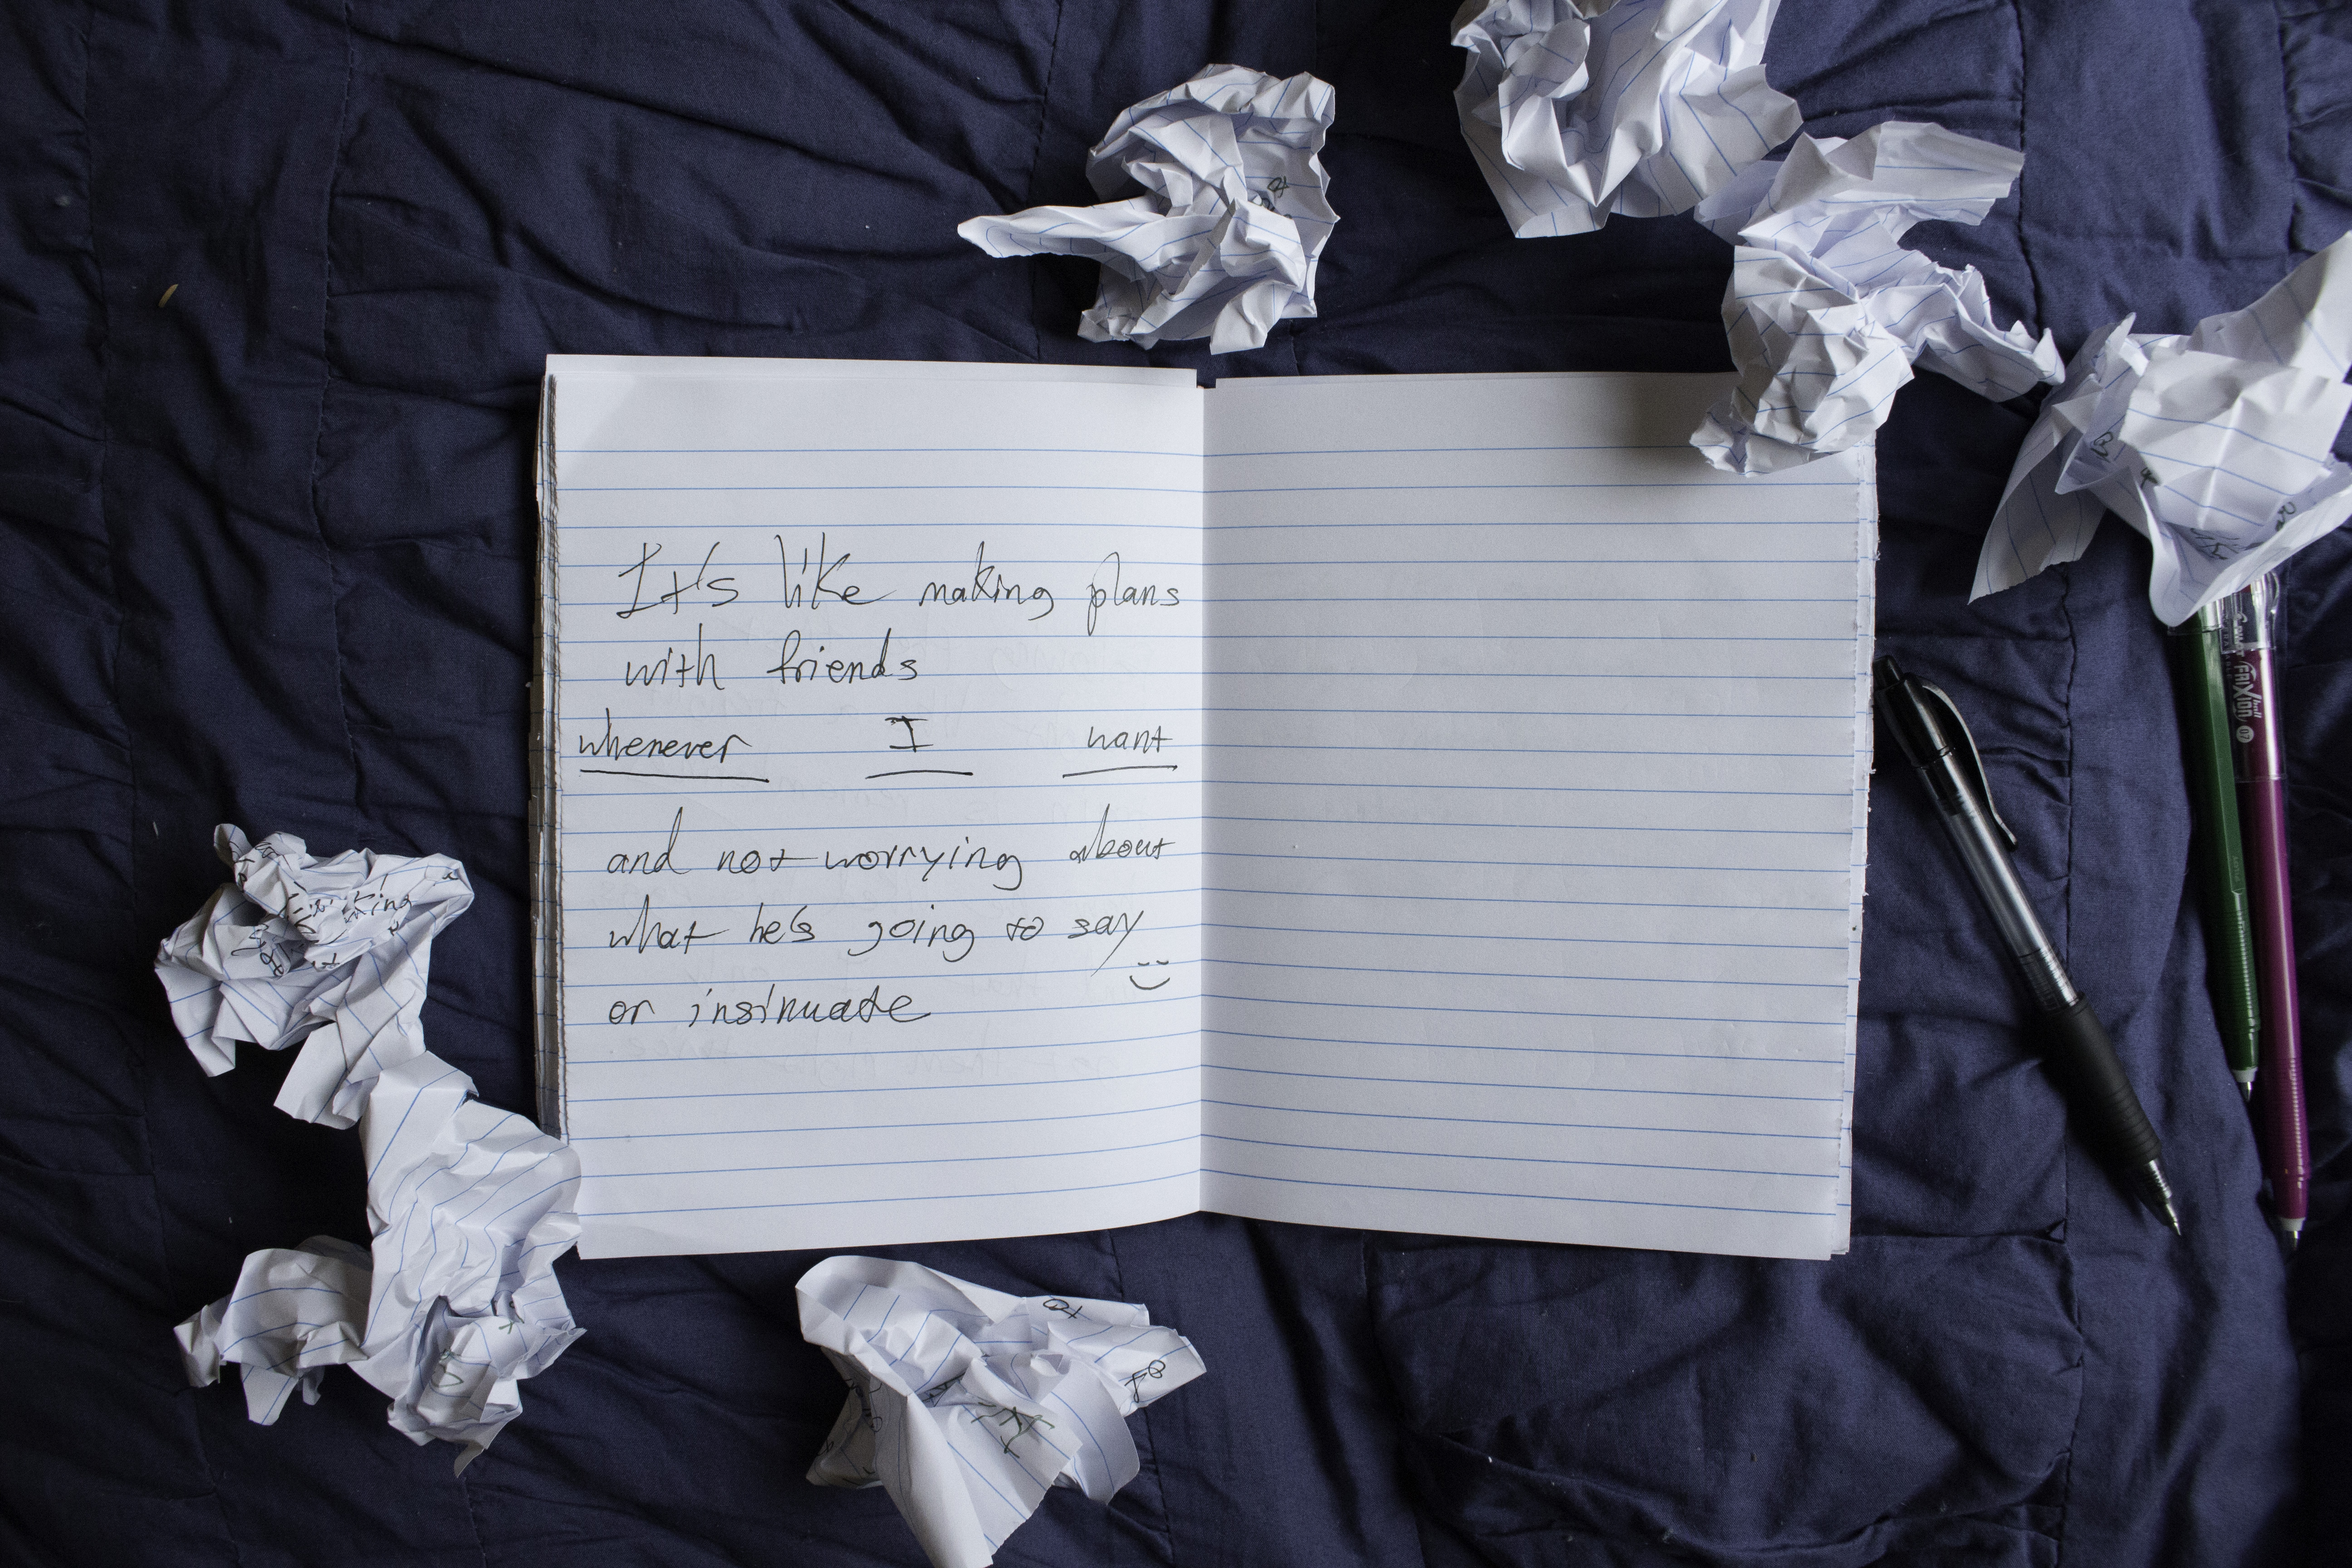 It's like making plans
with friends
whenever I want
and not worrying about
what he's going to say
or insinuate
FRIXION ball 07
king